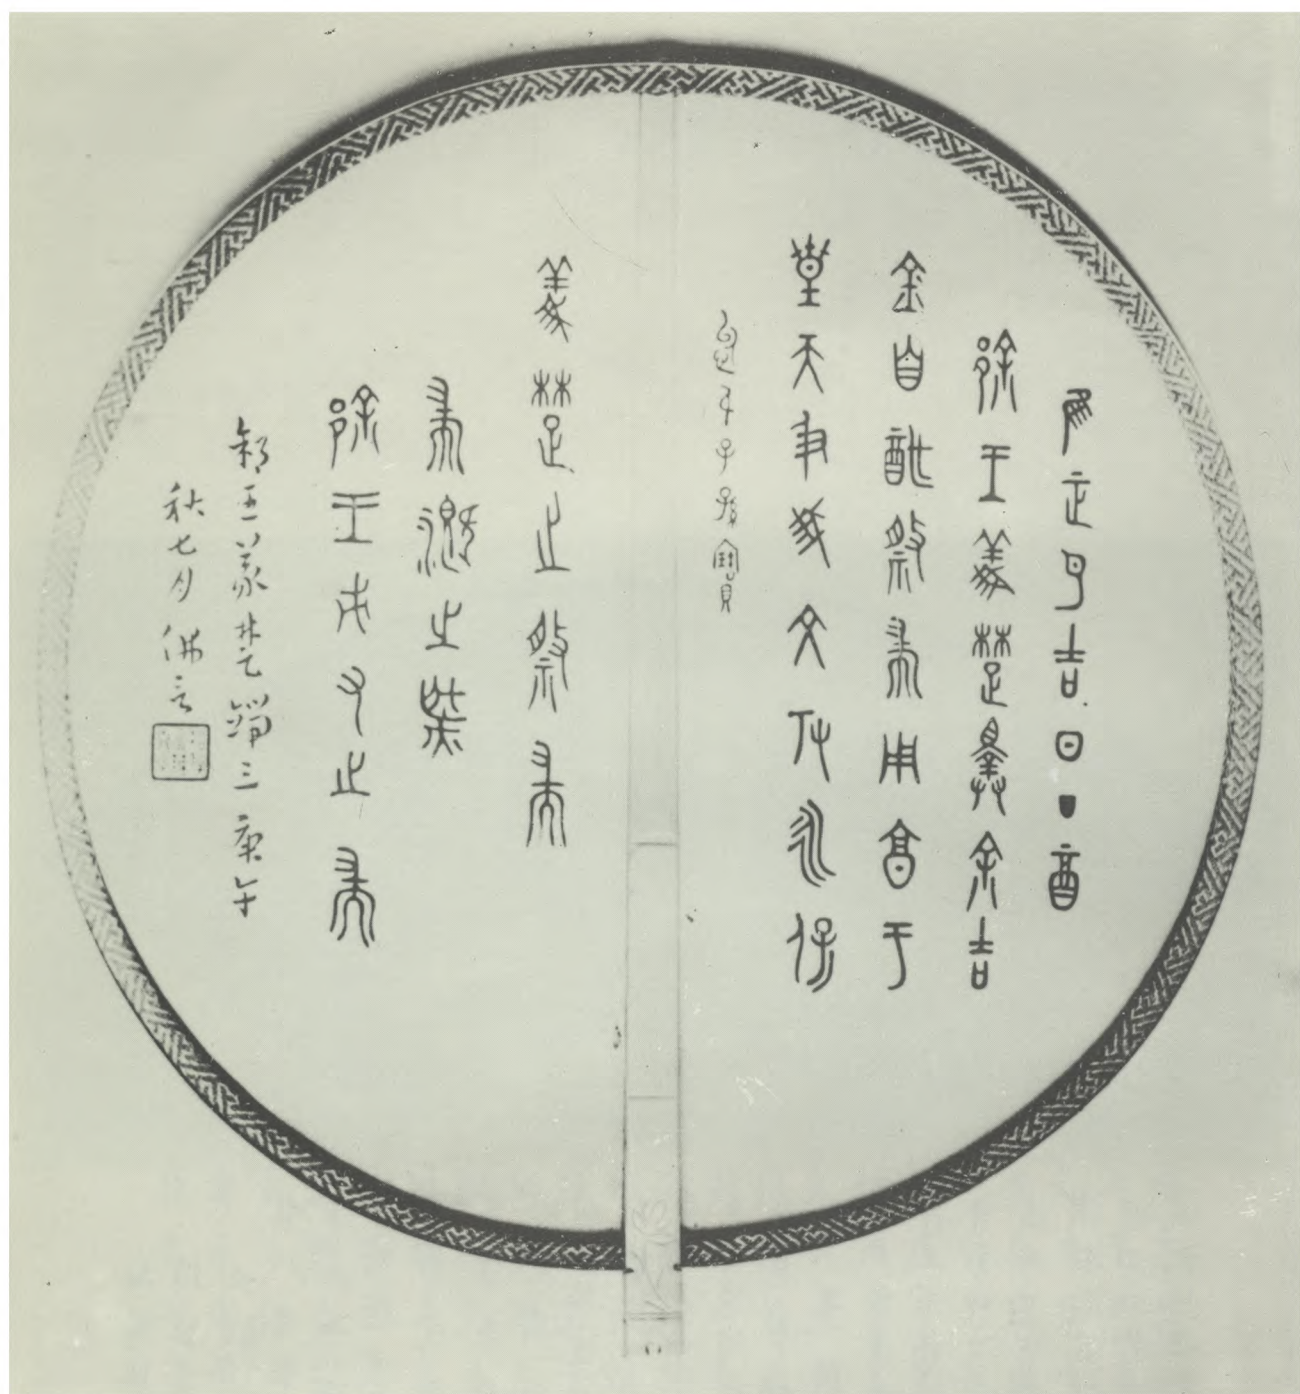 隹正月吉日丁酉
郐王義楚擇余吉
金自酢祭耑用享于
皇天及我文考永保
身子孫寶
義楚之祭耑
耑溉之
郐王又之耑
郐王義楚鍴三庚午
秋七月佛言